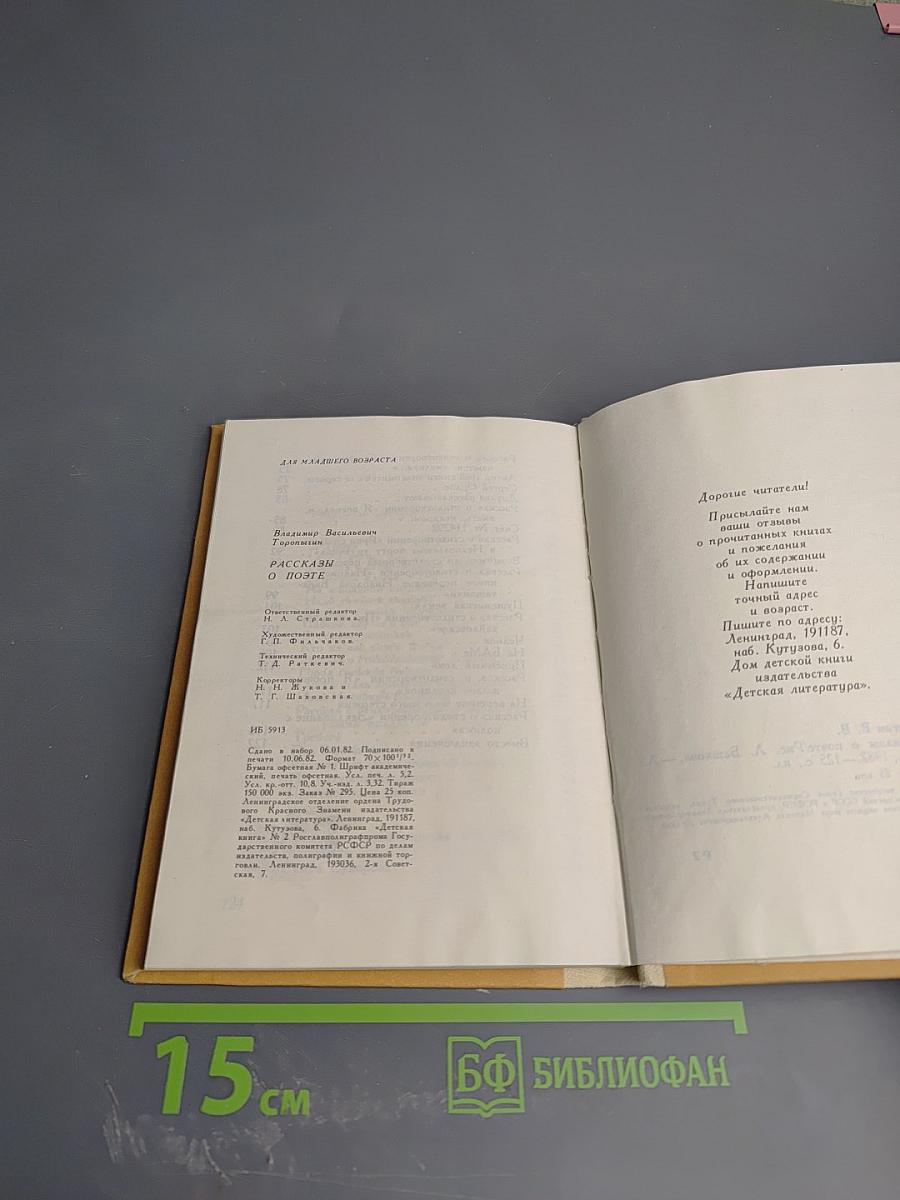 ДЛЯ МЛАДШЕГО ВОЗРАСТА
Владимир Васильевич
Торопыгин
РАССКАЗЫ
О ПОЭТЕ
Ответственный редактор
Н. Л. Страшкова.
Художественный редактор
Г. П. Фильчаков.
Технический редактор
Т. Д. Раткевич.
Корректоры
Н. Н. Жукова и
Т. Г. Шаховская.
ИБ 5913
Сдано в набор 06.01.82. Подписано к
печати 10.06.82. Формат 70×100¹/₃₂.
Бумага офсетная № 1. Шрифт академиче-
ский, печать офсетная. Усл. печ. л. 5,2.
Усл. кр.-отт. 10,8. Уч.-изд. л. 3,32. Тираж
150 000 экз. Заказ № 295. Цена 25 коп.
Ленинградское отделение ордена Трудо-
вого Красного Знамени издательства
«Детская литература». Ленинград, 191187,
наб. Кутузова, 6. Фабрика «Детская
книга» № 2 Росглавполиграфпрома Госу-
дарственного комитета РСФСР по делам
издательств, полиграфии и книжной тор-
говли. Ленинград, 193036, 2-я Совет-
ская, 7.
Дорогие читатели!
Присылайте нам
ваши отзывы
о прочитанных книгах
и пожелания
об их содержании
и оформлении.
Напишите
точный адрес
и возраст.
Пишите по адресу:
Ленинград, 191187,
наб. Кутузова, 6.
Дом детской книги
издательства
«Детская литература».
15 см
БФ БИБЛИОФАН